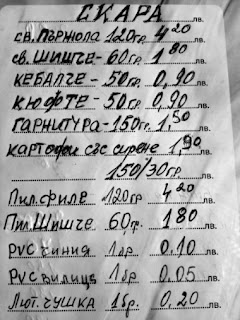 СКАРА лв.
св. ПЪРЖОЛА 120гр. 4 20 лв.
св. ШИШЧЕ - 60гр. 1 80 лв.
КЕБАПЧЕ - 50гр. 0,90 лв.
КЮФТЕ - 50гр. 0,90 лв.
ГАРНИТУРА - 150гр. 1,50 лв.
картофи със сирене 1,90 лв.
150/30гр. лв.
Пил. филе 120гр 4 20 лв.
Пил. Шишче 60гр. 1 80 лв.
PVC чиния 1бр. 0,10 лв.
PVC вилица 1бр 0,05 лв.
Лют. чушка 1бр. 0,20 лв.